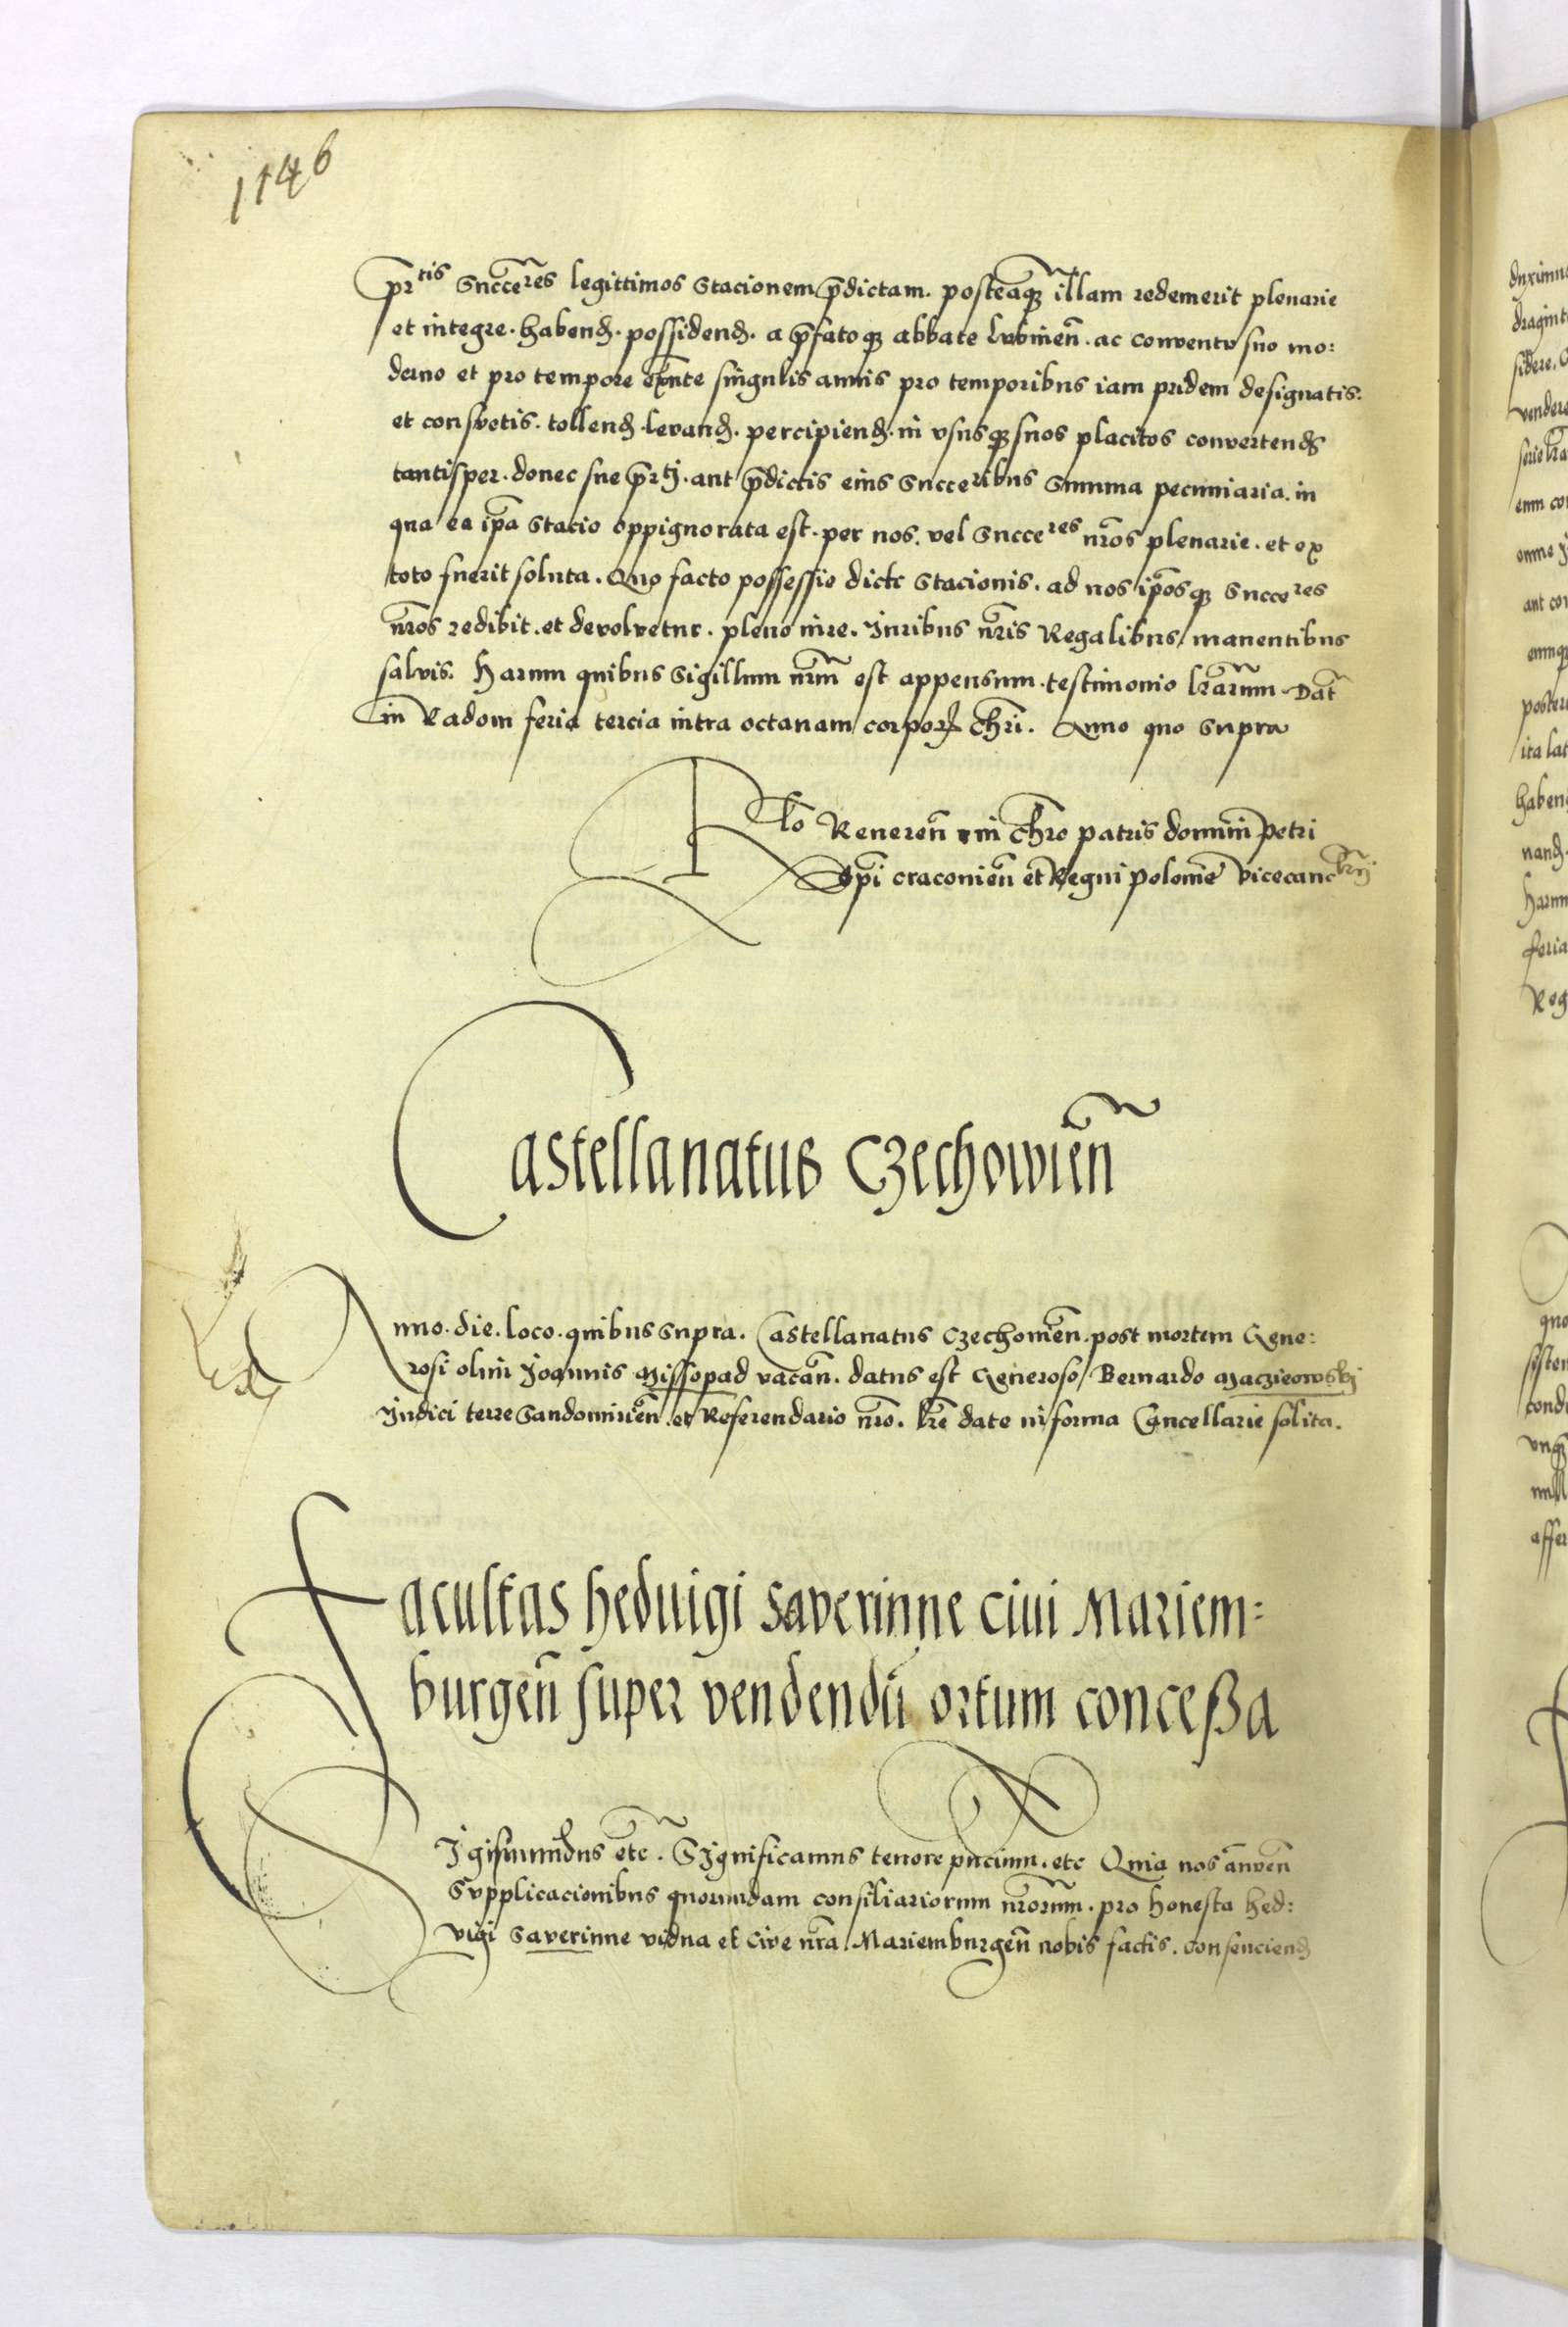 1146
p̄rtis Succēres legittimos Stacionem p̄dictam. posteaq̄ illam redemerit plenarie
et integre. habend. possidend. a p̄fatoq abbate lubinen̄. ac conventu suo mo:
derno et pro tempore exn̄te singulis annis pro temporibus iam pridem designatis.
et consvetis. tollend. levand. percipiend. in vsusq suos placitos convertend
tantisper. donec sue p̄rtj. aut p̄dictis eius Succeribus Summa pecuniaria. in
qua ea ip̄a Stacio oppignorata est. per nos. vel Succeres nr̄os plenarie. et ex
toto fuerit soluta. Quo facto possessio dicte Stacionis. ad nos ip̄osq Succeres
nr̄os redibit. et devolvetur. pleno iure. Iuribus nr̄is Regalibus manentibus
salvis. Harum quibus Sigillum nr̄m est appensum. testimonio lr̄arum. Dat̄
in Radom feria tercia intra octavam corporis chr̄i. Anno quo Supra
Rl̄o Reveren̄ in chr̄o patris domini petri
Ep̄i craconien̄ et Regni polonie vicecancrij
Castellanatus Czechowien̄
Anno. die. loco. quibus Supra. Castellanatus Czechowien̄. post mortem Gene:
rosi olim Joannis Missopad vacan̄. datus est Generoso Bernardo Maczieowskj
Iudici terre Sandomirien̄. et Referendario nr̄o. lr̄e date in forma Cancellarie solita.
Facultas Heduigi Saverinne ciui Mariem:
burgen̄ super vendendū ortum conceßa
Sigismundus etc̄. Significamus tenore pn̄cium. etc Quia nos an̄uen̄
Supplicacionibus quorundam consiliariorum nr̄orum. pro honesta Hed:
vigi Saverinne vidua et cive nr̄a. Mariemburgen̄ nobis factis. consenciend